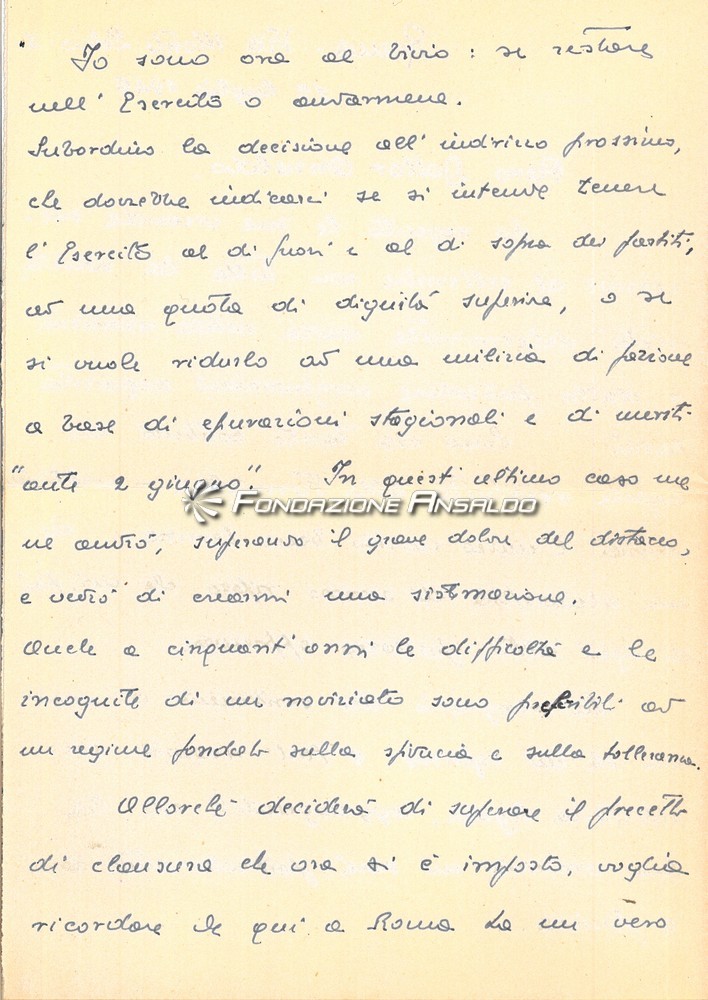 Io sono ora al bivio: se restare
nell'Esercito o andarmene.
Subordino la decisione all'indirizzo prossimo,
che dovrebbe indicarci se si intende tenere
l'Esercito al di fuori e al di sopra dei partiti,
ad una quota di dignità superiore, o se
si vuole ridurlo ad una milizia di fazione
a base di epurazioni stagionali e di meriti
"ante 2 giugno". In quest'ultimo caso me
FONDAZIONE ANSALDO
ne andrò, superando il grave dolore del distacco,
e vedrò di crearmi una sistemazione.
Anche a cinquant'anni le difficoltà e le
incognite di un noviziato sono preferibili ad
un regime fondato sulla sfiducia e sulla tolleranza.
Allorché deciderà di superare il precetto
di clausura che ora si è imposto, voglia
ricordare che qui a Roma ha un vero